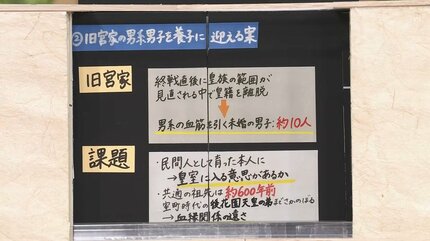 ②旧宮家の男系男子を養子に迎える案
旧宮家
終戦直後に皇族の範囲が
見直される中で皇籍を離脱
男系の血筋を引く未婚の男子:約10人
課題
・民間人として育った本人に
→皇室に入る意思があるか
・共通の祖先は約600年前
室町時代の後花園天皇の弟までさかのぼる
→血縁関係の遠さ